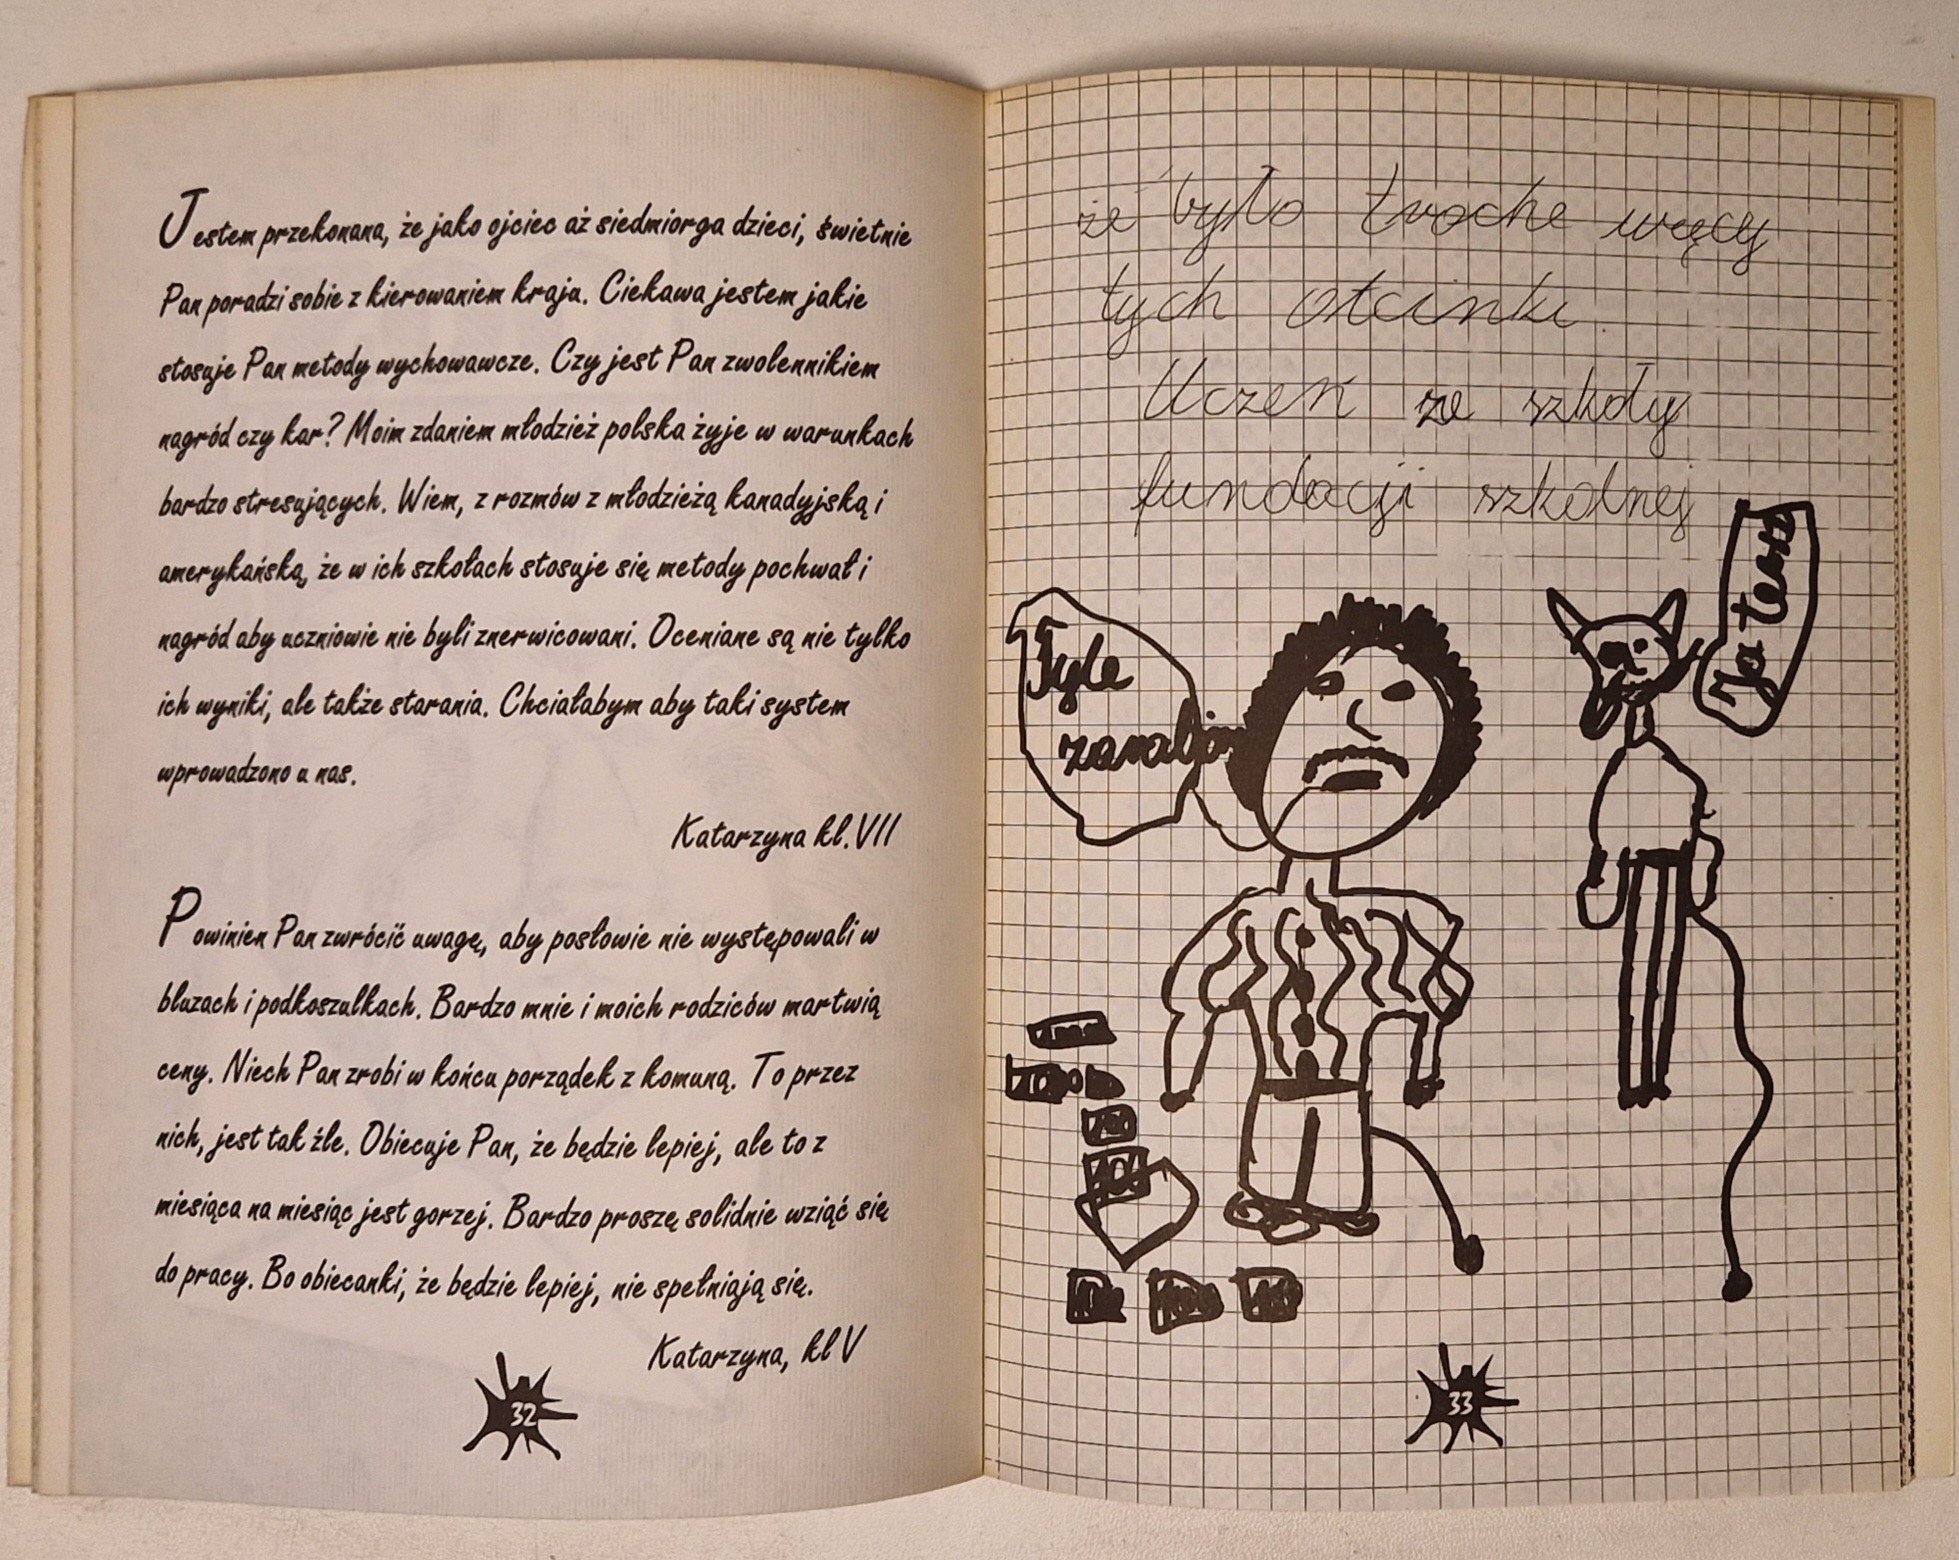 Jestem przekonana, że jako ojciec aż siedmiorga dzieci, świetnie
Pan poradzi sobie z kierowaniem kraju. Ciekawa jestem jakie
stosuje Pan metody wychowawcze. Czy jest Pan zwolennikiem
nagród czy kar? Moim zdaniem młodzież polska żyje w warunkach
bardzo stresujących. Wiem, z rozmów z młodzieżą kanadyjską i
amerykańską, że w ich szkołach stosuje się metody pochwał i
nagród aby uczniowie nie byli znerwicowani. Oceniane są nie tylko
ich wyniki, ale także starania. Chciałabym aby taki system
wprowadzono u nas.
Katarzyna kl.VII
Powinien Pan zwrócić uwagę, aby posłowie nie występowali w
bluzach i podkoszulkach. Bardzo mnie i moich rodziców martwią
ceny. Niech Pan zrobi w końcu porządek z komuną. To przez
nich, jest tak źle. Obiecuje Pan, że będzie lepiej, ale to z
miesiąca na miesiąc jest gorzej. Bardzo proszę solidnie wziąć się
do pracy. Bo obiecanki, że będzie lepiej, nie spełniają się.
Katarzyna, kl V
32
że było troche węcy
tych otcinki
Uczeń ze szkoły
fundacji szkolnej
Ja tesz
Tyle
zarabjam
33